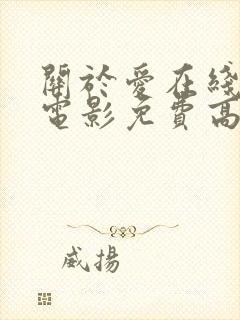 關於愛在綫
電影免費高
威揚